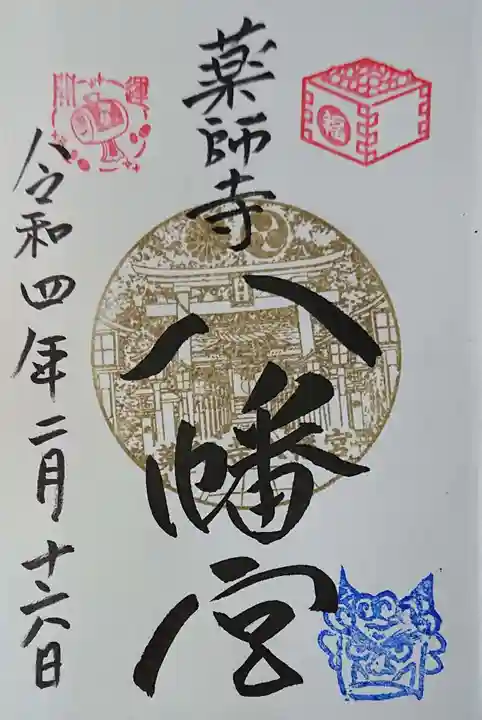 薬師寺
八幡宮
令和四年二月十六日
開運
福